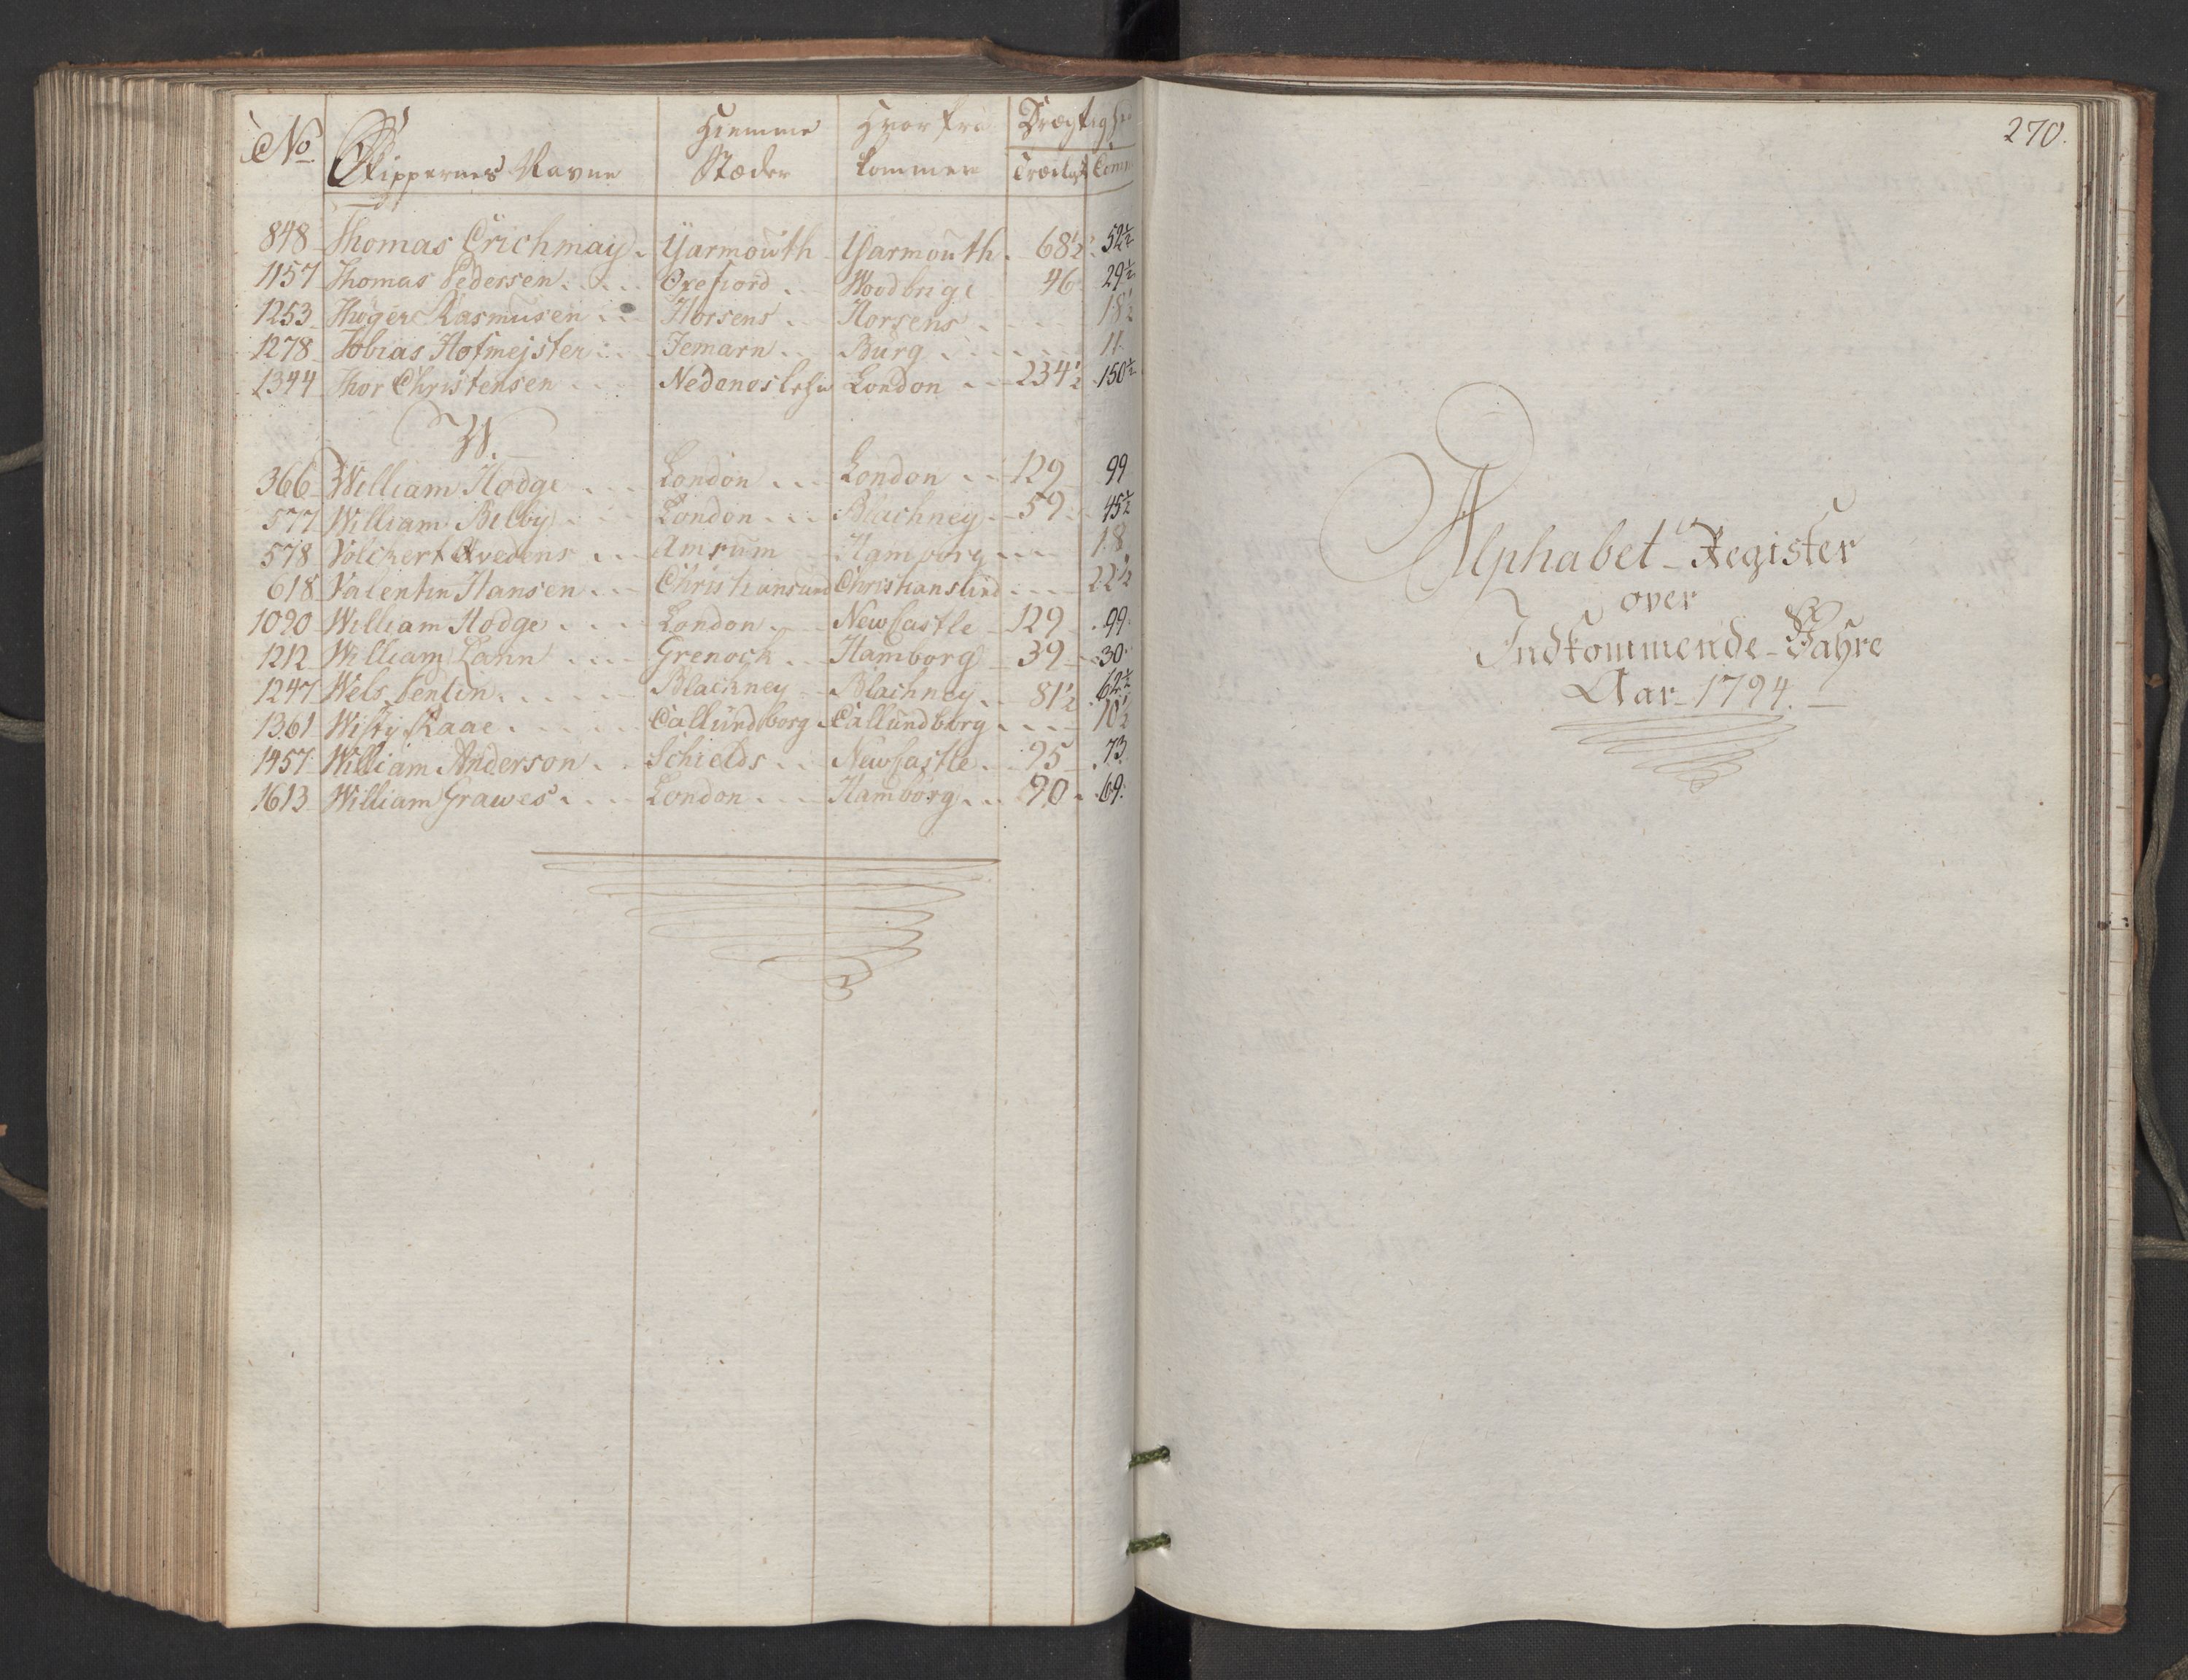 No Skippernes Navne Hiemme Stæder Hvor fra kommer Drægtighed Trælast Comm
848 Thomas Crichmay Yarmouth Yarmouth 68½ 52½
1157 Thomas Pedersen Oxefiord Woodbrige 46 29½
1253 Thøger Rasmusen Horsens Horsens 18½
1278 Tobias Hofmejster Femarn Burg 11
1344 Thor Christensen London 234½ 150½
W.
366 William Hodge London London 129 99
577 William Bilby London Blachney 59 45½
578 Volckert Qvedens Amrum Hamborg 18
618 Valentin Hansen Christiansund Christiansund 22½
1090 William Hodge London Newcastle 129 99
1212 William Lann Grenock Hamborg 39 30
1247 Wels Pentin Blackney Blachney 81½ 62½
1361 Raae Callundborg Callundborg 10½
1457 William Anderson Schields Newcastle 95 73
1613 William Grawes London Hamborg 90 69
270.
Alphabet-Register
over
Indkommende-Vahre
Aar 1794.